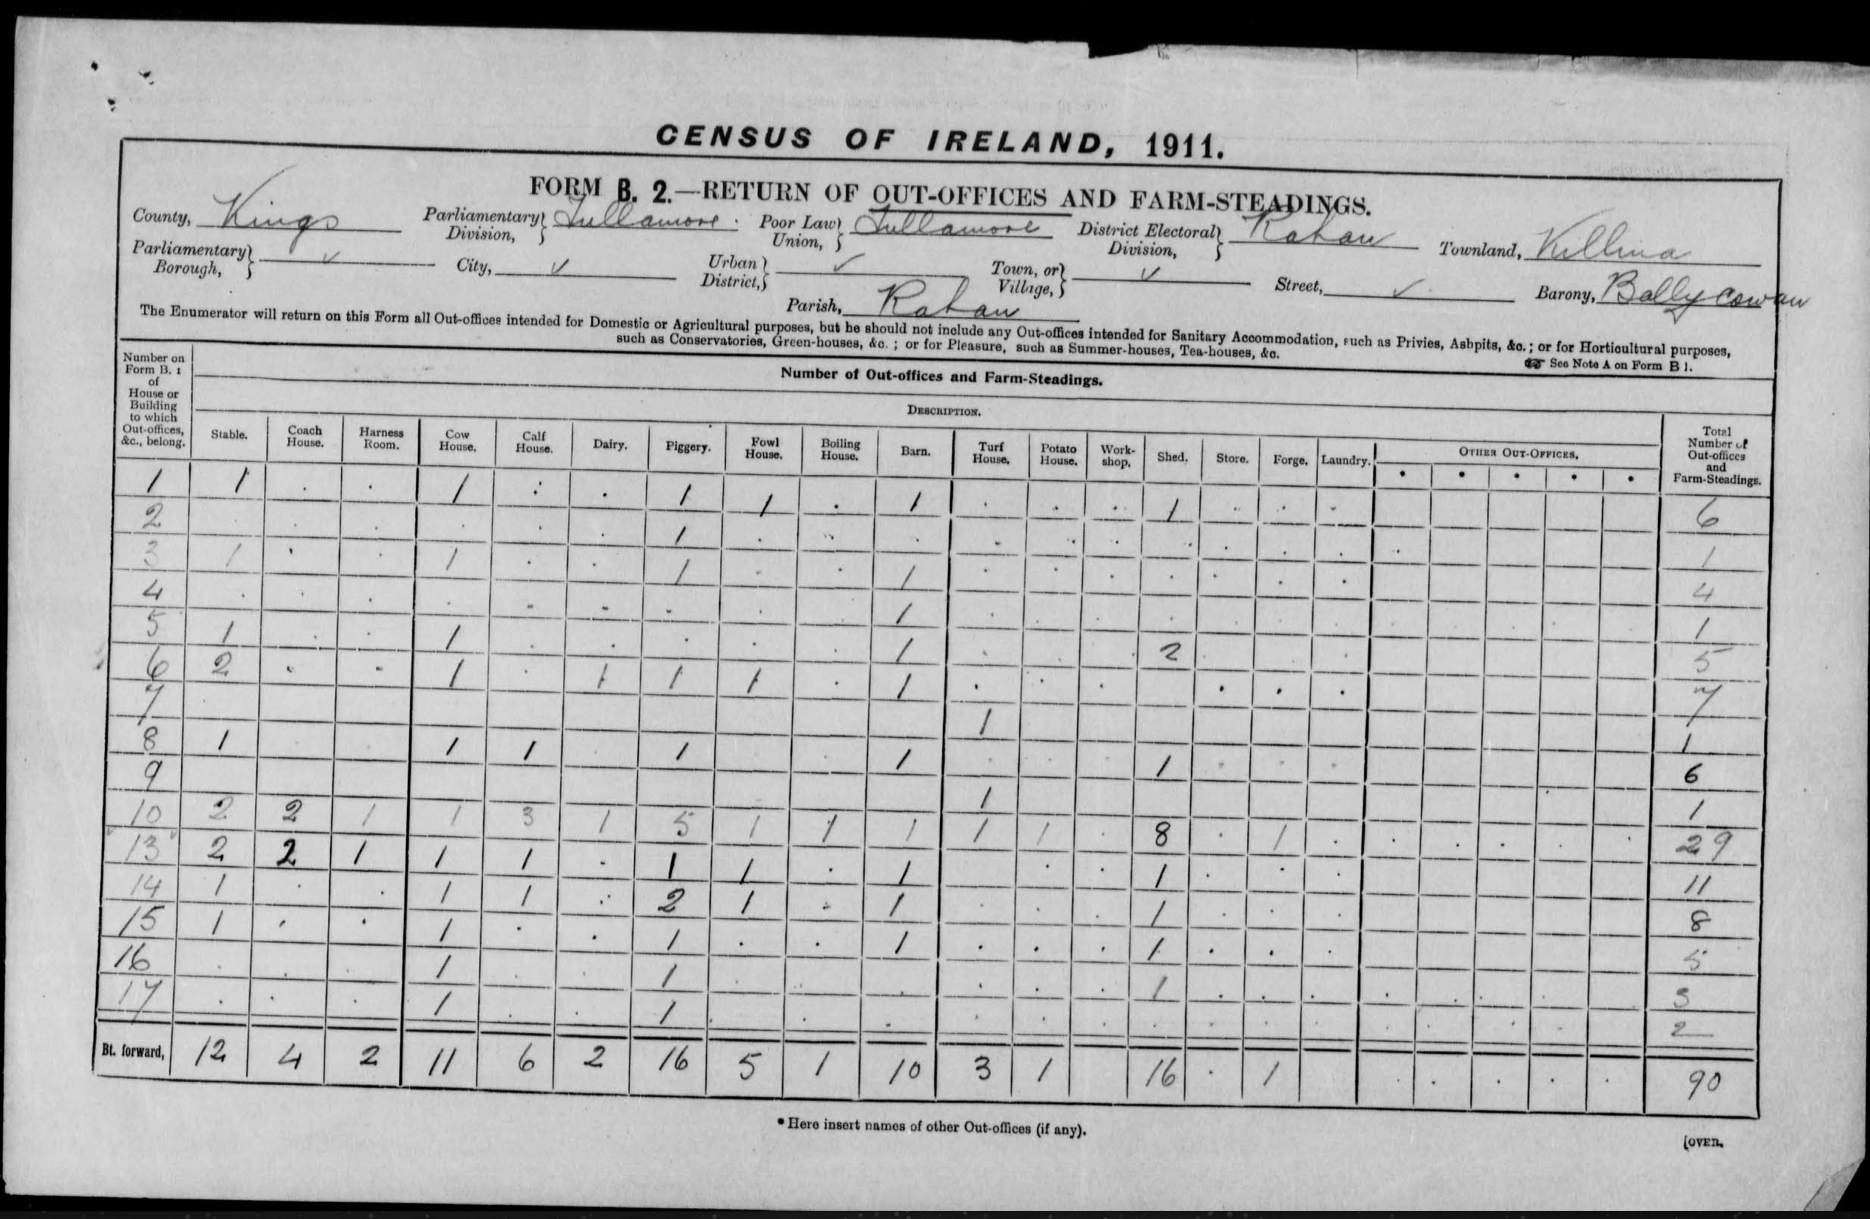 CENSUS OF IRELAND, 1911.
FORM B. 2.—RETURN OF OUT-OFFICES AND FARM-STEADINGS.
County, Kings Parliamentary Division, Tullamore. Poor Law Union, Tullamore District Electoral Division, Rahan Townland, Killina
Parliamentary Borough, ✓ City, ✓ Urban District, ✓ Town, or Village, ✓ Street, ✓ Barony, Ballycowan
Parish, Rahan
The Enumerator will return on this Form all Out-offices intended for Domestic or Agricultural purposes, but he should not include any Out-offices intended for Sanitary Accommodation, such as Privies, Ashpits, &c.; or for Horticultural purposes,
such as Conservatories, Green-houses, &c.; or for Pleasure, such as Summer-houses, Tea-houses, &c.
☞ See Note A on Form B 1.
Number on Form B. 1 of House or Building to which Out-offices, &c., belong.
Number of Out-offices and Farm-Steadings.
DESCRIPTION.
Stable. Coach House. Harness Room. Cow House. Calf House. Dairy. Piggery. Fowl House. Boiling House. Barn. Turf House. Potato House. Work-shop. Shed. Store. Forge. Laundry. OTHER OUT-OFFICES. * * * * * Total Number of Out-offices and Farm-Steadings.
1 1 . . 1 . . 1 1 . 1 . . . 1 . . . 6
2 . . . . . . 1 . . . . . . . . . . 1
3 1 . . 1 . . 1 . . 1 . . . . . . . 4
4 . . . . . . . . . 1 . . . . . . . 1
5 1 . . 1 . . . . . 1 . . . 2 . . . 5
6 2 . . 1 . 1 1 1 . 1 . . . . . . 7
7 1 1
8 1 1 1 . 1 . 1 . . . 1 . . . 6
9 1 1
10 2 2 1 1 3 1 5 1 1 1 1 1 . 8 . 1 . 29
13 2 2 1 1 1 . 1 1 . 1 . . 1 . . . 11
14 1 . . 1 1 . 2 1 . 1 . . . 1 . . . 8
15 1 . . 1 . . 1 . . 1 . . . 1 . . . 5
16 . . . 1 . . 1 . . . . . . 1 . . . 3
17 . . . 1 . . 1 . . . . . . . . . . 2
Bt. forward, 12 4 2 11 6 2 16 5 1 10 3 1 16 . 1 . . . . . 90
* Here insert names of other Out-offices (if any).
[OVER.